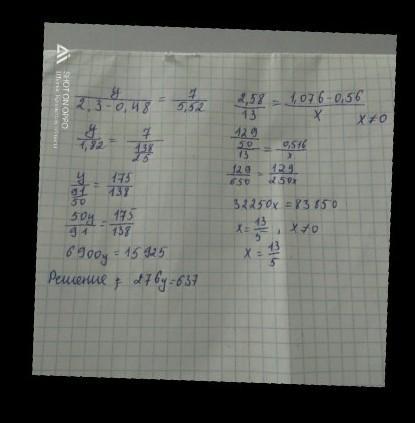 y/(2,3-0,48) = 7/5,52
y/1,82 = 7/(138/25)
y/(91/50) = 175/138
50y/91 = 175/138
6900y = 15925
Решение ; 276y=637
2,58/13 = (1,076-0,56)/x
x≠0
(129/50)/13 = 0,516/x
129/650 = 129/250x
32250x = 83850
x = 13/5 , x≠0
x = 13/5
SHOT ON OPPO